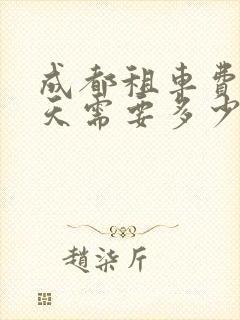 成都租車費
天需要多少
趙柒斤